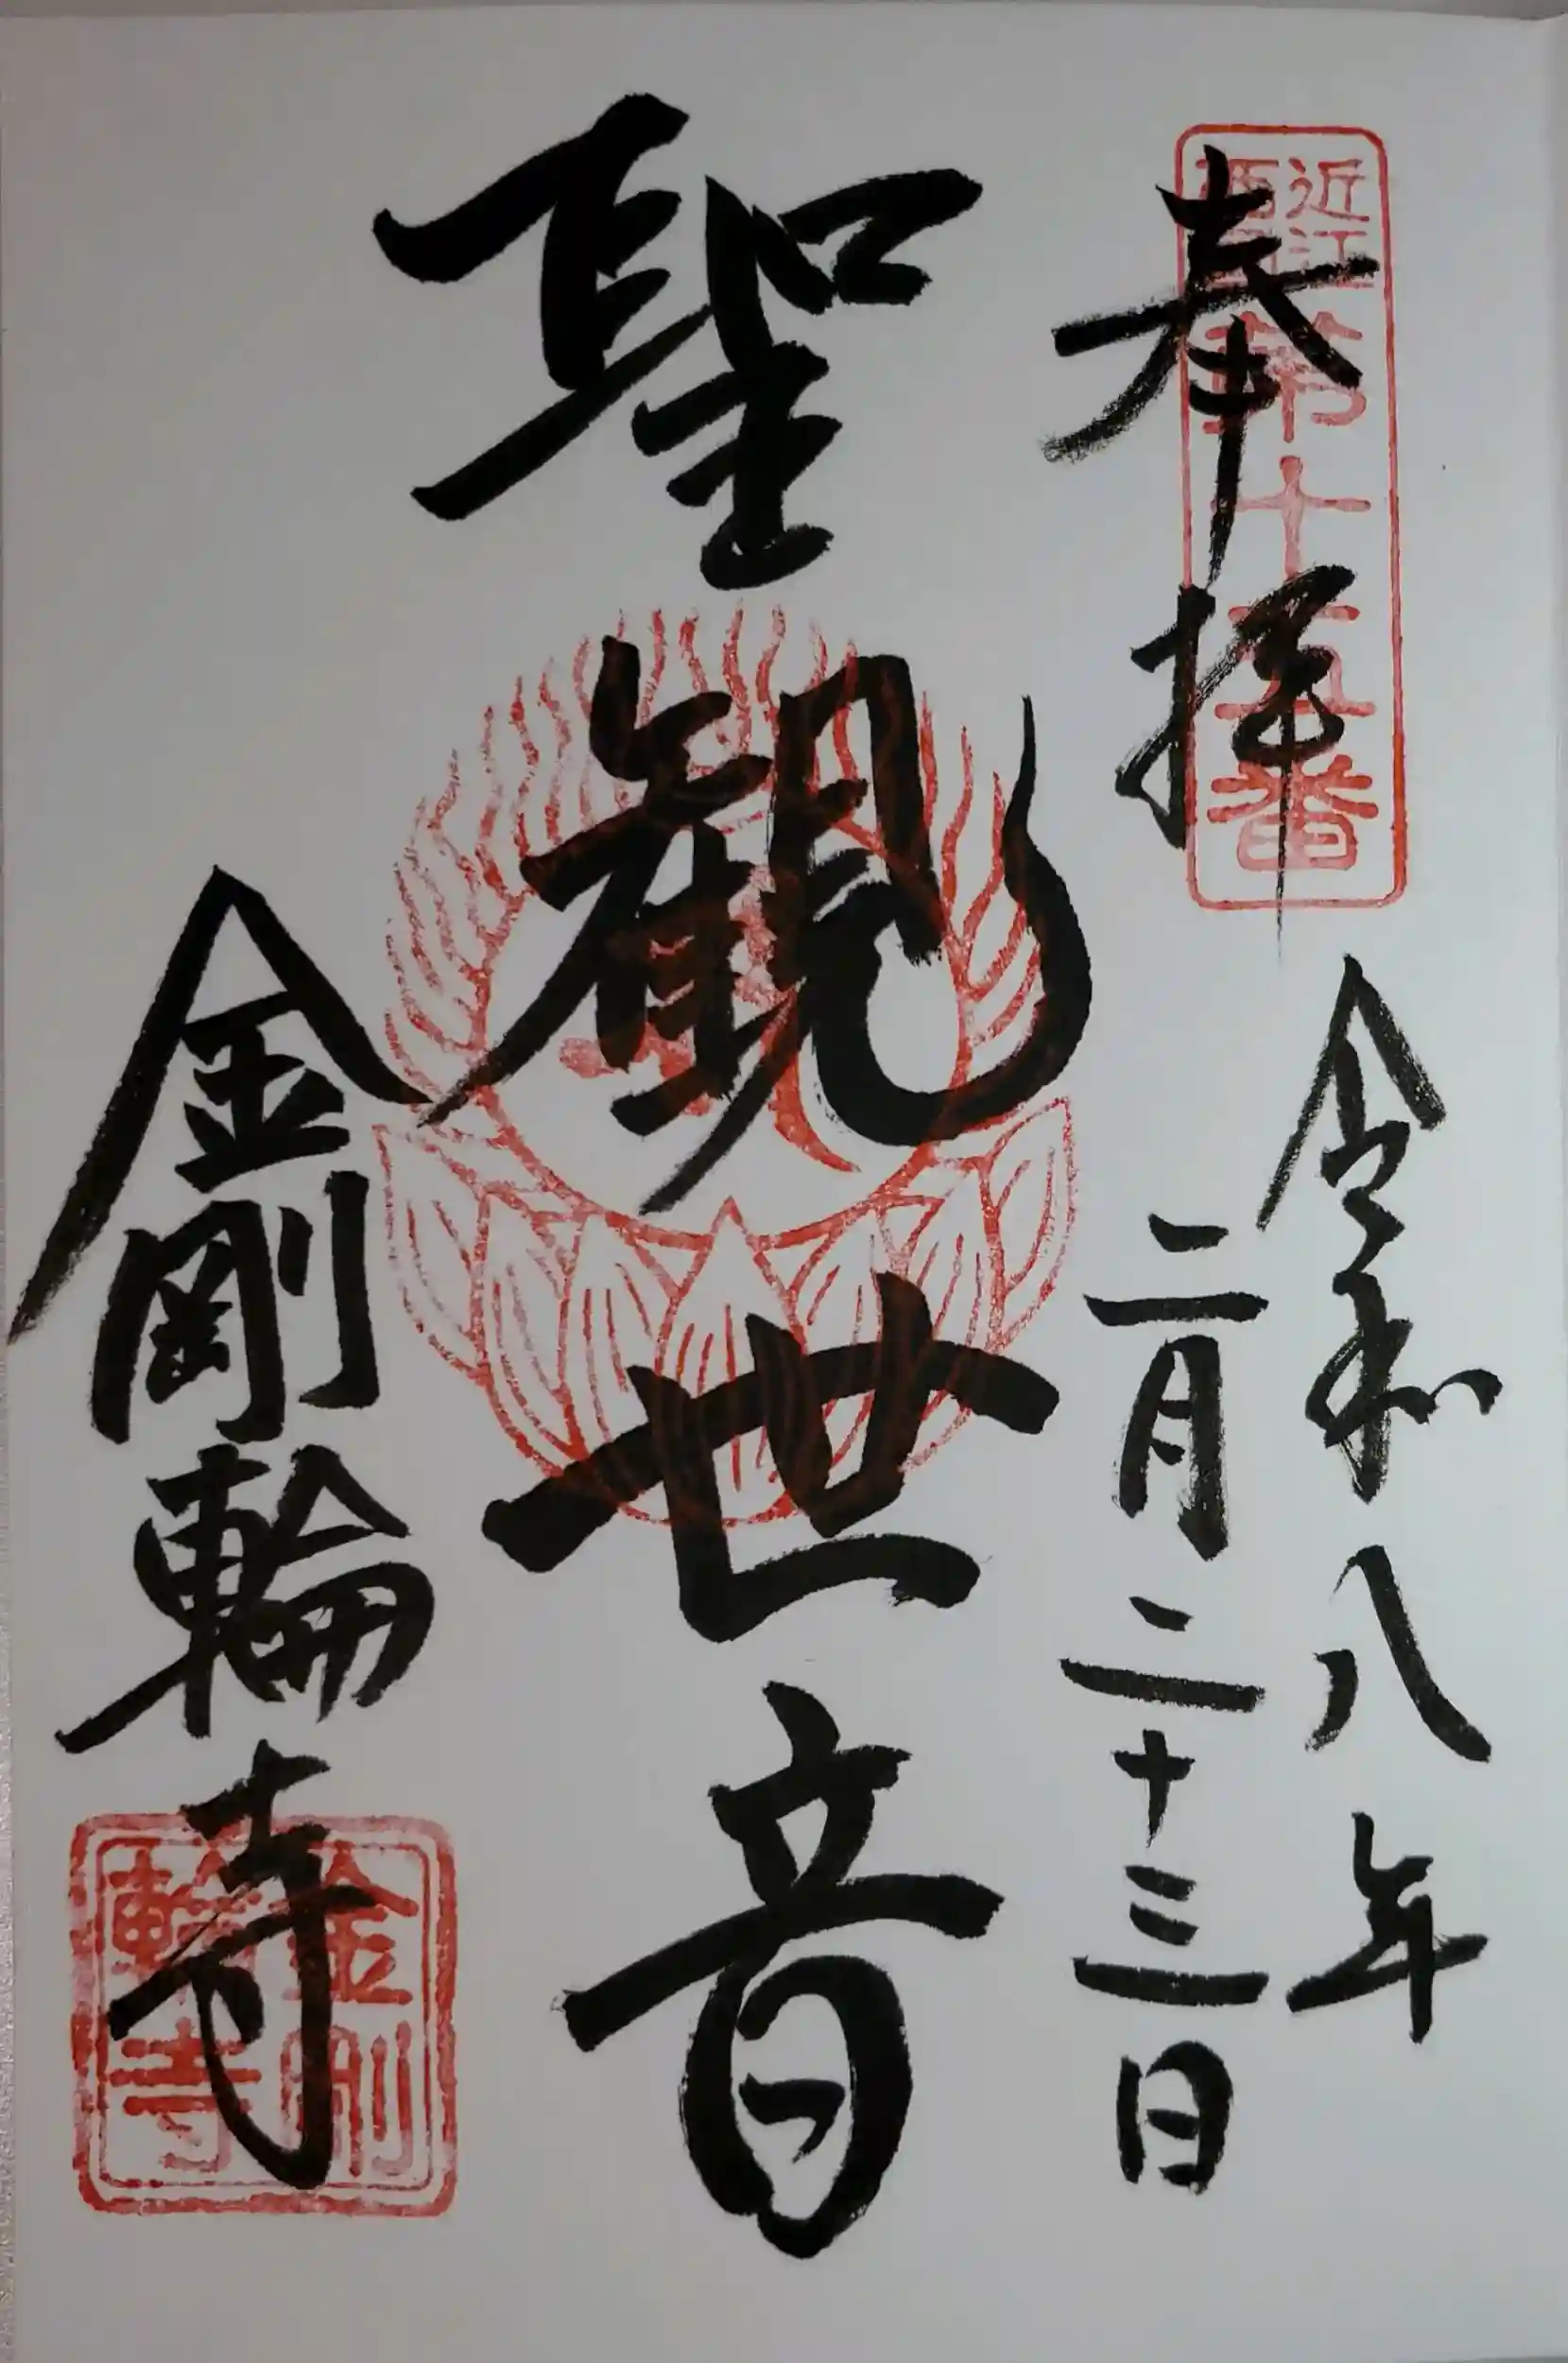 奉拝
近江
西国
第十五番
令和八年
二月二十三日
聖観世音
金剛輪寺
金剛
輪寺